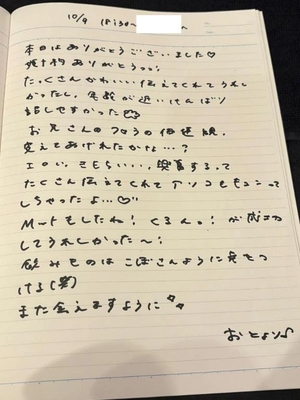 10/9 18:30〜
本日はありがとうございました♡
ありがとうっっ!
たっくさんかわいい伝えてくれてうれし
かったし、年齢が近いけんばり
話しやすかった
お兄さんの の価値観、
変えてあげれたかな…?
エロい、きもちいい、興奮するって
たくさん伝えてくれてアソコもキュンって
しちゃったよ…♡
Mットもしたね! くるんっ! が成功
してうれしかった〜!
飲みものはこぼさんように気をつ
ける(笑)
また会えますように